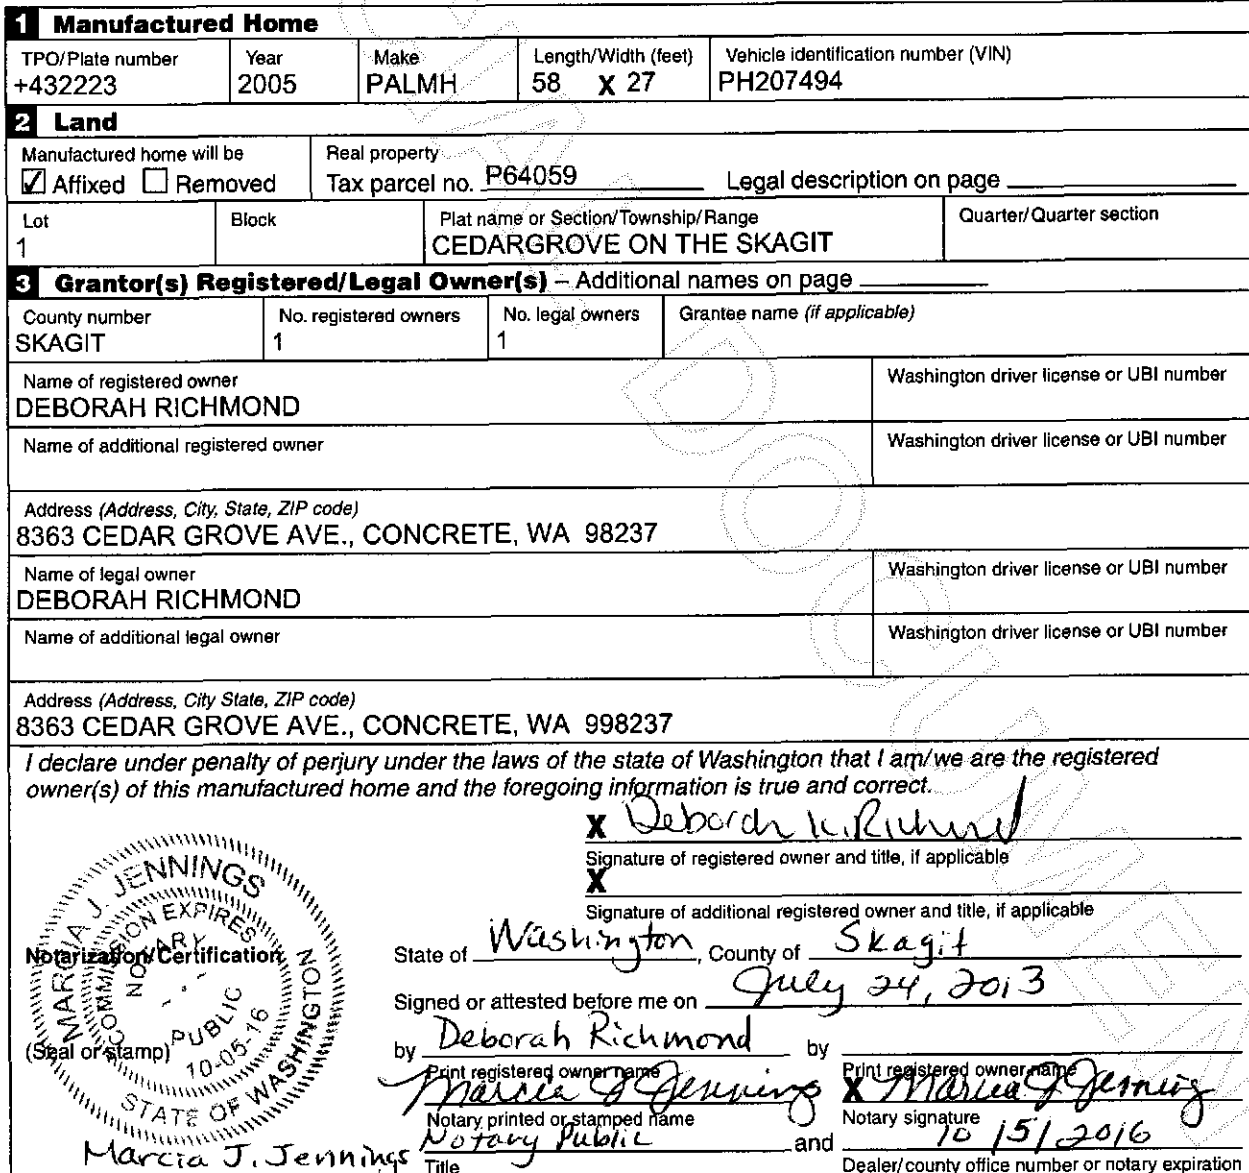 1 Manufactured Home
TPO/Plate number Year Make Length/Width (feet) Vehicle identification number (VIN)
+432223 2005 PALMH 58 X 27 PH207494
2 Land
Manufactured home will be Real property
☑ Affixed ☐ Removed Tax parcel no. P64059 Legal description on page
Lot Block Plat name or Section/Township/Range Quarter/Quarter section
1 CEDARGROVE ON THE SKAGIT
3 Grantor(s) Registered/Legal Owner(s) – Additional names on page
County number No. registered owners No. legal owners Grantee name (if applicable)
SKAGIT 1 1
Name of registered owner Washington driver license or UBI number
DEBORAH RICHMOND
Name of additional registered owner Washington driver license or UBI number
Address (Address, City, State, ZIP code)
8363 CEDAR GROVE AVE., CONCRETE, WA 98237
Name of legal owner Washington driver license or UBI number
DEBORAH RICHMOND
Name of additional legal owner Washington driver license or UBI number
Address (Address, City State, ZIP code)
8363 CEDAR GROVE AVE., CONCRETE, WA 998237
I declare under penalty of perjury under the laws of the state of Washington that I am/we are the registered
owner(s) of this manufactured home and the foregoing information is true and correct.
X Deborah K. Richmond
Signature of registered owner and title, if applicable
X
Signature of additional registered owner and title, if applicable
MARCIA J. JENNINGS
COMMISSION EXPIRES
NOTARY
PUBLIC
10-05-16
STATE OF WASHINGTON
Notarization/Certification State of Washington, County of Skagit
Signed or attested before me on July 24, 2013
(Seal or stamp) by Deborah Richmond by
Print registered owner name Print registered owner name
Marcia J Jennings X Marcia J Jennings
Notary printed or stamped name Notary signature
Notary Public and 10/5/2016
Marcia J. Jennings Title Dealer/county office number or notary expiration